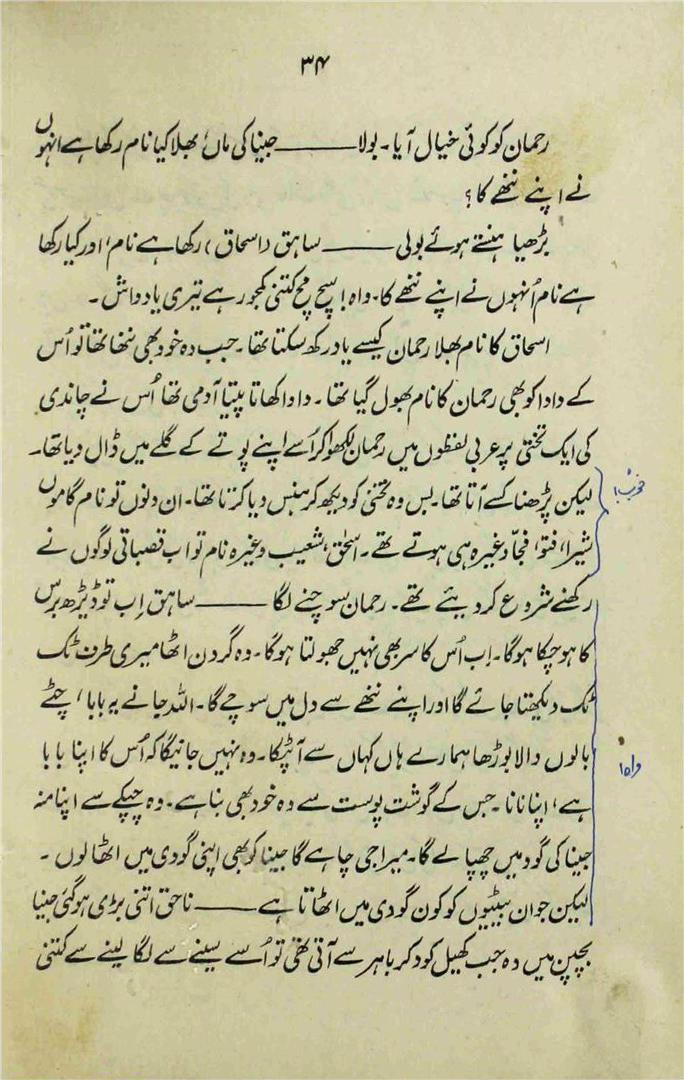 ۳۴
رحمان کو کوئی خیال آیا۔ بولا ــــــ جینا کی ماں، بھلا کیا نام رکھا ہے انہوں
نے اپنے ننھے کا؟
بڑھیا ہنستے ہوئے بولی ــــــ ساہق (اسحاق) رکھا ہے نام، اور کیا رکھا
ہے نام اُنہوں نے اپنے ننھے کا۔ واہ! سچ مچ کتنی کمجور ہے تیری یادداش۔
اسحاق کا نام بھلا رحمان کیسے یاد رکھ سکتا تھا۔ جب وہ خود بھی ننھا تھا تو اُس
کے دادا کو بھی رحمان کا نام بھول گیا تھا۔ دادا کھاتا پیتا آدمی تھا اُس نے چاندی
کی ایک تختی پر عربی لفظوں میں رحمان لکھوا کر اُسے اپنے پوتے کے گلے میں ڈال دیا تھا۔
لیکن پڑھنا کسے آتا تھا۔ بس وہ تختی کو دیکھ کر ہنس دیا کرتا تھا۔ ان دنوں تو نام گاموں
خوب!
شیرا، فتو، فجا وغیرہ ہی ہوتے تھے۔ اسحٰق، شعیب وغیرہ نام تو اب قصباتی لوگوں نے
رکھنے شروع کر دیئے تھے۔ رحمان سوچنے لگا ــــــ ساہق اب تو ڈیڑھ برس
کا ہو چکا ہوگا۔ اب اُس کا سر بھی نہیں جھولتا ہوگا۔ وہ گردن اٹھا میری طرف ٹک
ٹک دیکھتا جائے گا اور اپنے ننھے سے دل میں سوچے گا۔ اللہ جانے یہ بابا، چٹے
بالوں والا بوڑھا ہمارے ہاں کہاں سے آ ٹپکا۔ وہ نہیں جانیگا کہ اُس کا اپنا بابا
واہ!
ہے، اپنا نانا۔ جس کے گوشت پوست سے وہ خود بھی بنا ہے۔ وہ چپکے سے اپنا منہ
جینا کی گود میں چھپا لے گا۔ میرا جی چاہے گا جینا کو بھی اپنی گودی میں اٹھا لوں۔
لیکن جوان بیٹیوں کو کون گودی میں اٹھاتا ہے ــــــ ناحق اتنی بڑی ہو گئی جینا
بچپن میں وہ جب کھیل کود کر باہر سے آتی تھی تو اُسے سینے سے لگا لینے سے کتنی